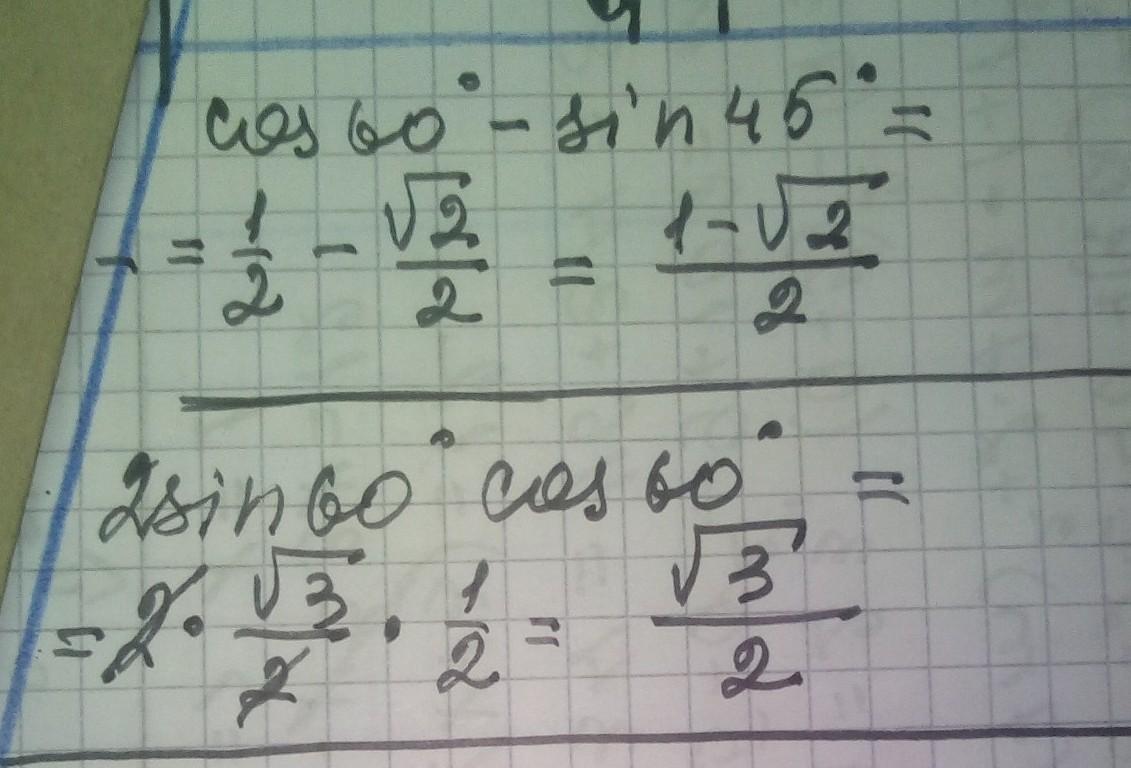 cos 60° - sin 45° =
- = 1/2 - √2/2 = (1-√2)/2
2sin 60° cos 60° =
= 2 · √3/2 · 1/2 = √3/2